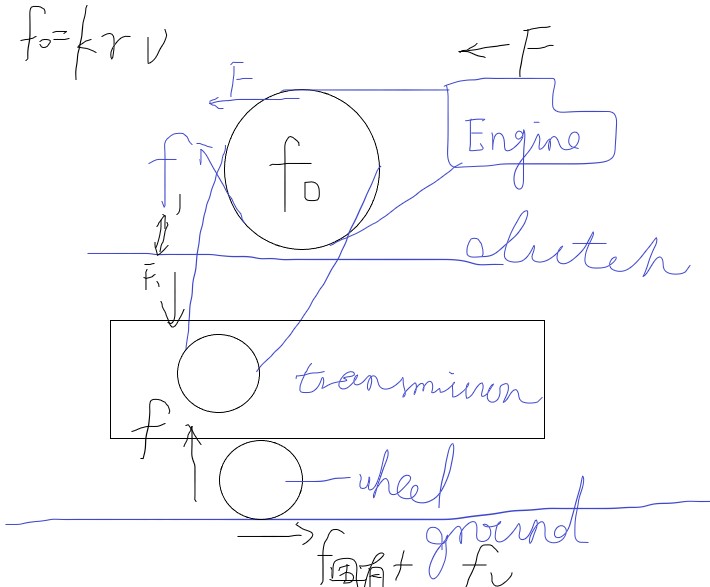 f₀=krv
F
F
Engine
f
f₀
clutch
F₁
transmission
f
wheel
ground
f固有+ fv